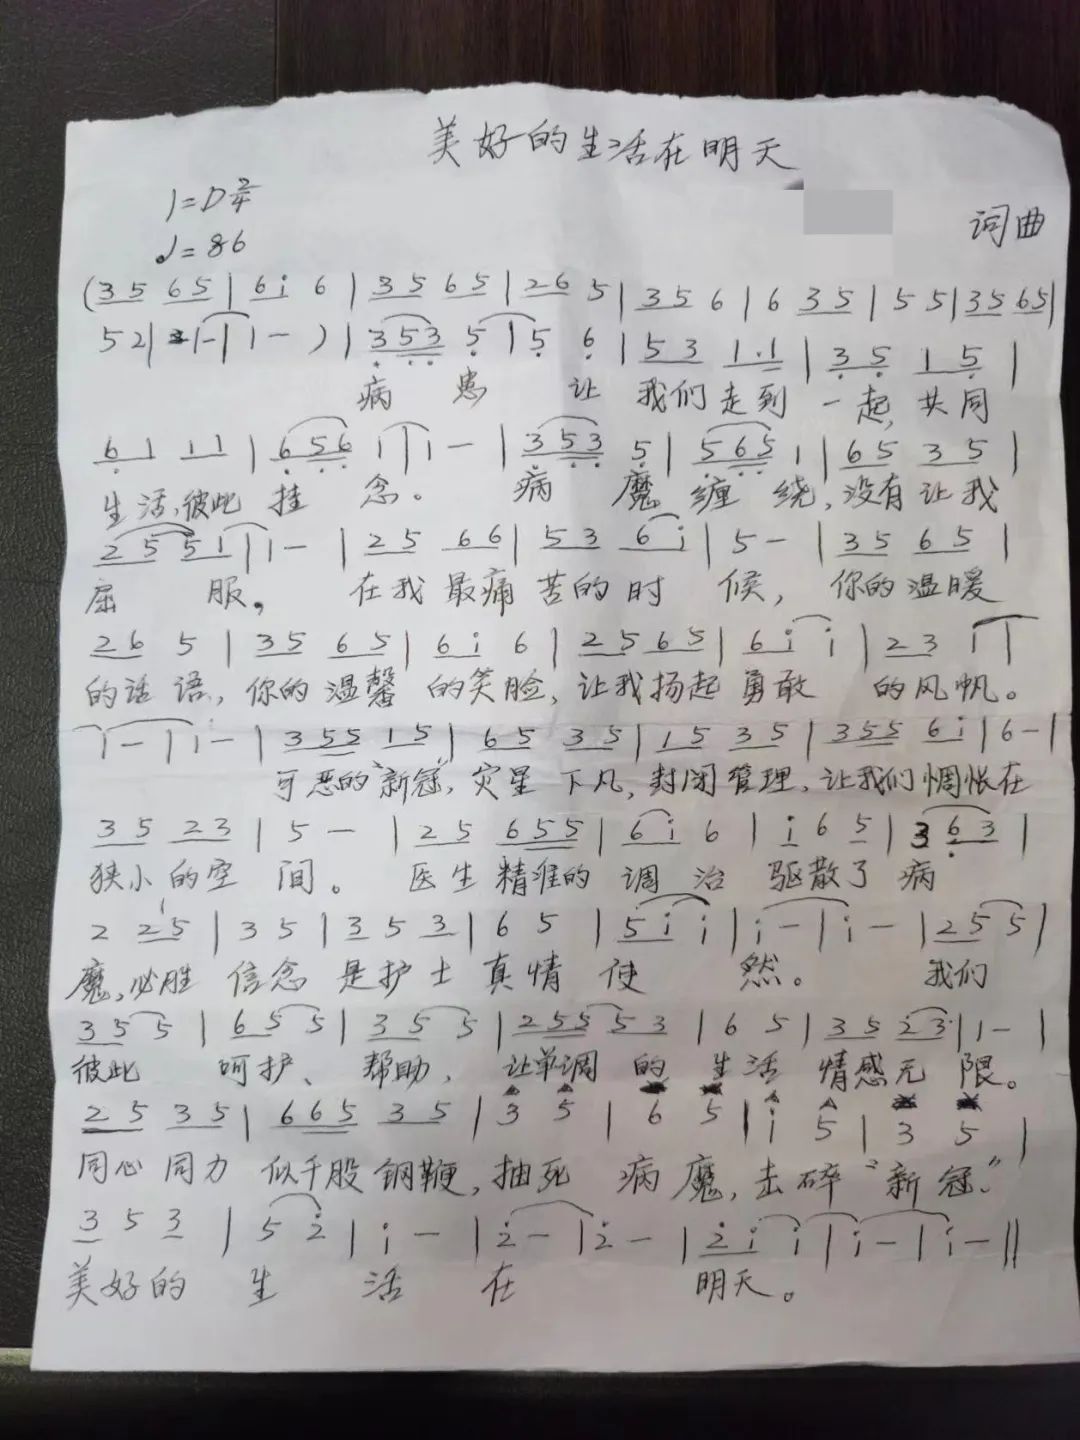 美好的生活在明天
1=D 2/4
词曲
♩=86
(35 65 | 6i 6 | 35 65 | 26 5 | 35 6 | 6 35 | 5 5 | 35 65 |
52 | 1- | 1- ) | 353 5 | 5 6 | 53 1·1 | 35 15 |
病 患 让 我们走到 一起,共同
61 11 | 656 1 | 1- | 353 5 | 565 1 | 65 35 |
生活,彼此 挂 念。 病 魔 缠 绕,没有让我
25 51 | 1- | 25 66 | 53 6i | 5- | 35 65 |
屈 服。 在我 最痛 苦的时 候, 你的温暖
26 5 | 35 65 | 6i 6 | 25 65 | 6i i | 23 i |
的话 语,你的温馨 的笑脸,让我扬起 勇敢 的风帆。
i- | i- | 355 15 | 65 35 | 15 35 | 355 6i | 6- |
可恶的“新冠,灾星 下凡,封闭管理,让我们惆怅在
35 23 | 5- | 25 655 | 6i 6 | i 65 | 3 63 |
狭小的空 间。 医生 精准的 调 治 驱散了 病
2 25 | 3 5 | 3 5 3 | 6 5 | 5i i | i- | i- | 25 5 |
魔,必胜 信念 是护士 真情 使 然。 我们
35 5 | 65 5 | 35 5 | 255 53 | 6 5 | 35 23 | 1- |
彼此 呵护、 帮助, 让单调 的 生活 情感无 限。
25 35 | 665 35 | 3 5 | 6 5 | i 5 | 3 5 |
同心同力 似千股 钢鞭,抽死 病魔,击碎“新冠”
3 5 3 | 5 2 | i- | 2- | 2- | 2i i | i- | i- ‖
美好的 生 活 在 明天。